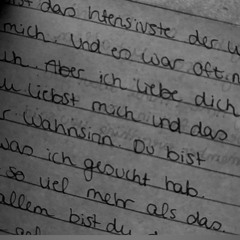 ist das intensivste der u
mich. Und es war oft n
ich. Aber ich liebe dich
u liebst mich und das
r Wahnsinn. Du bist
was ich gesucht hab.
so viel mehr als das.
allem bist du